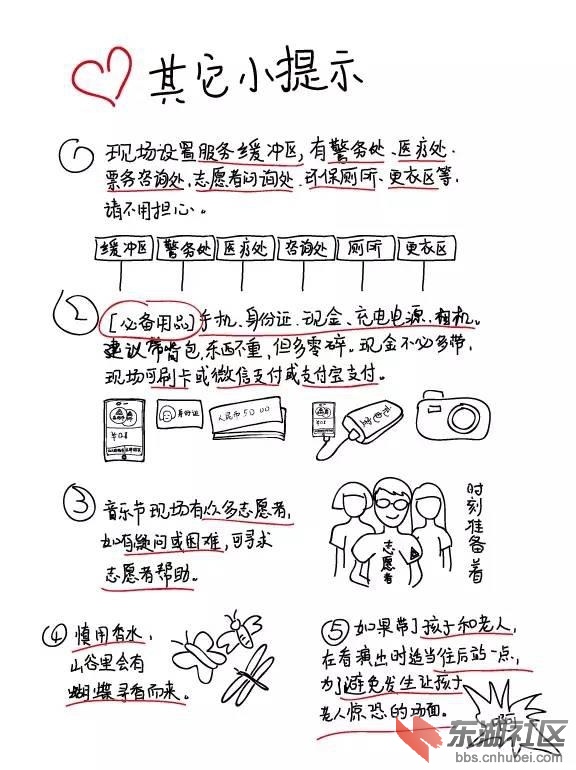 其它小提示
① 现场设置服务缓冲区,有警务处、医疗处、
票务咨询处、志愿者问询处、环保厕所、更衣区等,
请不用担心。
缓冲区 警务处 医疗处 咨询处 厕所 更衣区
② [必备用品]手机、身份证、现金、充电电源、相机。
建议带背包,东西不重,但多零碎。现金不必多带,
现场可刷卡或微信支付或支付宝支付。
身份证 人民币 50.00 充电宝
③ 音乐节现场有众多志愿者,
如有疑问或困难,可寻求
志愿者帮助。
志愿者
时刻准备着
④ 慎用香水,
山谷里会有
蝴蝶寻香而来。
⑤ 如果带了孩子和老人,
在看演出时适当往后站一点,
为了避免发生让孩子
老人惊恐的场面。
东湖社区
bbs.cnhubei.com